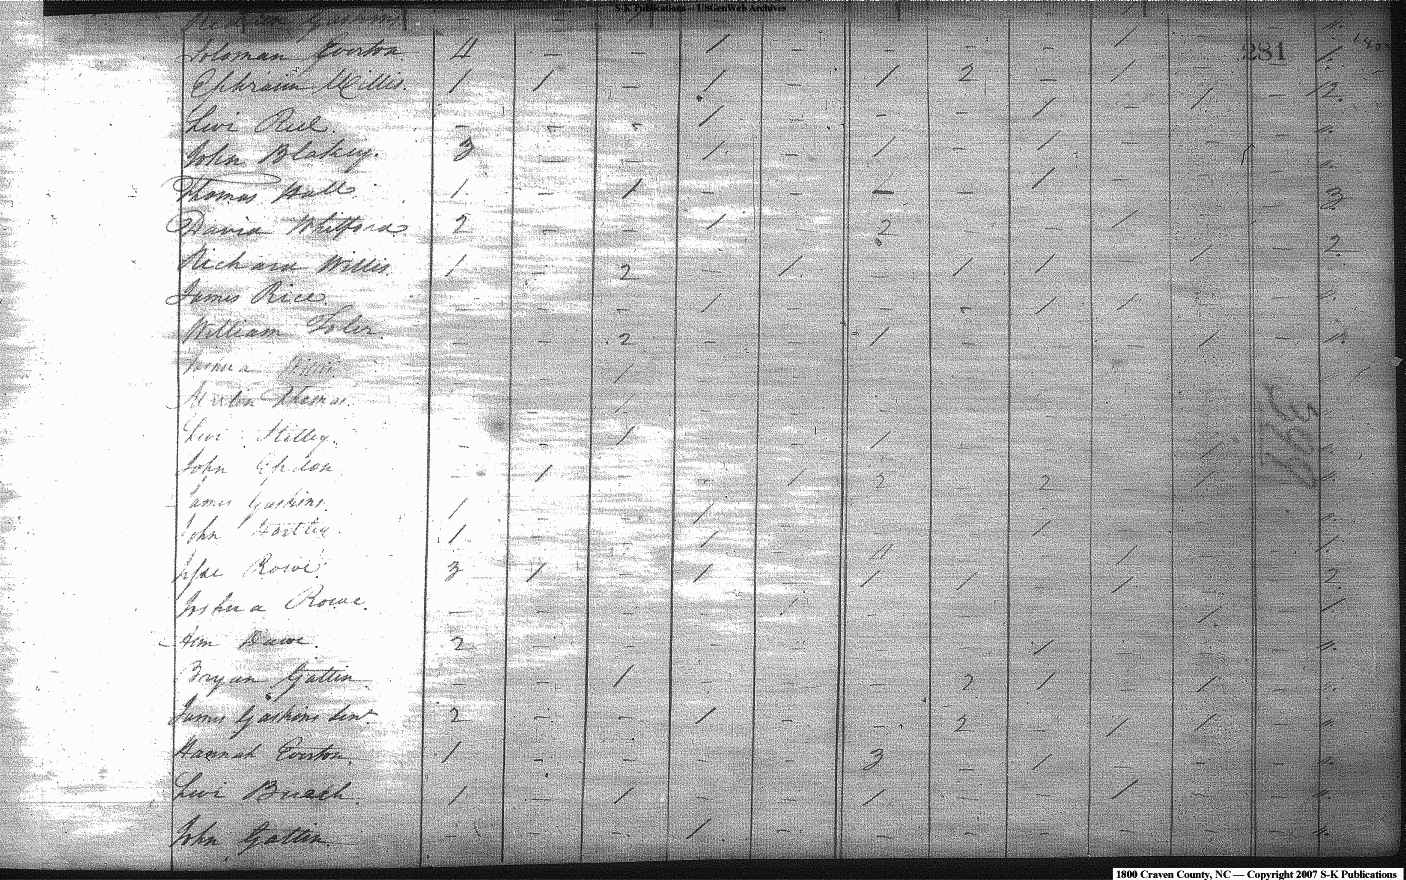 S-K Publications - USGenWeb Archives
Gaskins
281
Soloman Everton 4 - - / - - - - / - /.
Ephraim Willis. 1 / - / - / 2 - / - - 2.
Levi Rice. - - - / - - - / - / - ".
John Blakey. 3 - - / - / - / - - - ".
Thomas Hall 1 - 1 - - - - / - - - 3
David Whitford 2 - - / - 2 - - / - - 2
Richard Willis. 1 - 2 - / - / / - / - 2.
James Rice. - - - / - - - / / - - ".
William Toler - - 2 - - / - - - / - ".
- - / - - - - - - - -
Martin Thomas. - - / - - - - - - - -
Levi Stilley. - - / - - / - - - / - ".
John - / - - / 2 - 2 - / - ".
James Gaskins. 1 - - / - - - - - - - ".
John Hartley 1 - - / - 4 - / - - - /.
Rowe. 3 / - / - / / - / - - 2
Joshua Rowe. - - - - / - - - - / - /
2 - - - - - - / - - - ".
Bryan Gatlin - - / - - - 2 / - / - ".
James Gaskins Senr. 2 - - / - - 2 - / / - ".
Hannah Everton. 1 - - - - 3 - / - - - ".
Levi Buech. 1 - / - - / - - / - - ".
John Gatlin. - - - / - - - - - - - ".
1800 Craven County, NC — Copyright 2007 S-K Publications